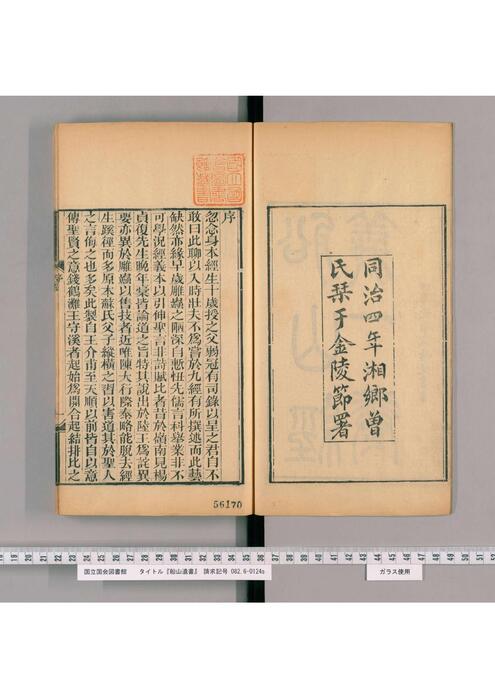 同治四年湘鄉曾
氏栞于金陵節署
序
忽念身本經生十歲授之父弱冠有司錄以呈之君自不
敢曰此聊以入時壯夫不為嘗於九經有所撰述而此藝
缺然亦緣早歲雕蟲之陋深自慙忸先儒言科舉業非不
可學況經義本以引伸聖言非詩賦比者昔於嶺南見楊
貞復先生晚年稾皆論道之旨特其說出於陸王為詫異
要亦異於雕蟲以售技者近唯陳大行際泰略能脫去經
生蹊徑而多原本蘇氏父子縱橫之習以害道其於聖人
之言侮之也多矣此製自王介甫至天順以前皆自以意
傳聖賢之意錢鶴灘王守溪者起始為開合起結排比之
56170
国立国会図書館 タイトル『船山遺書』 請求記号 082.6-0124s
ガラス使用